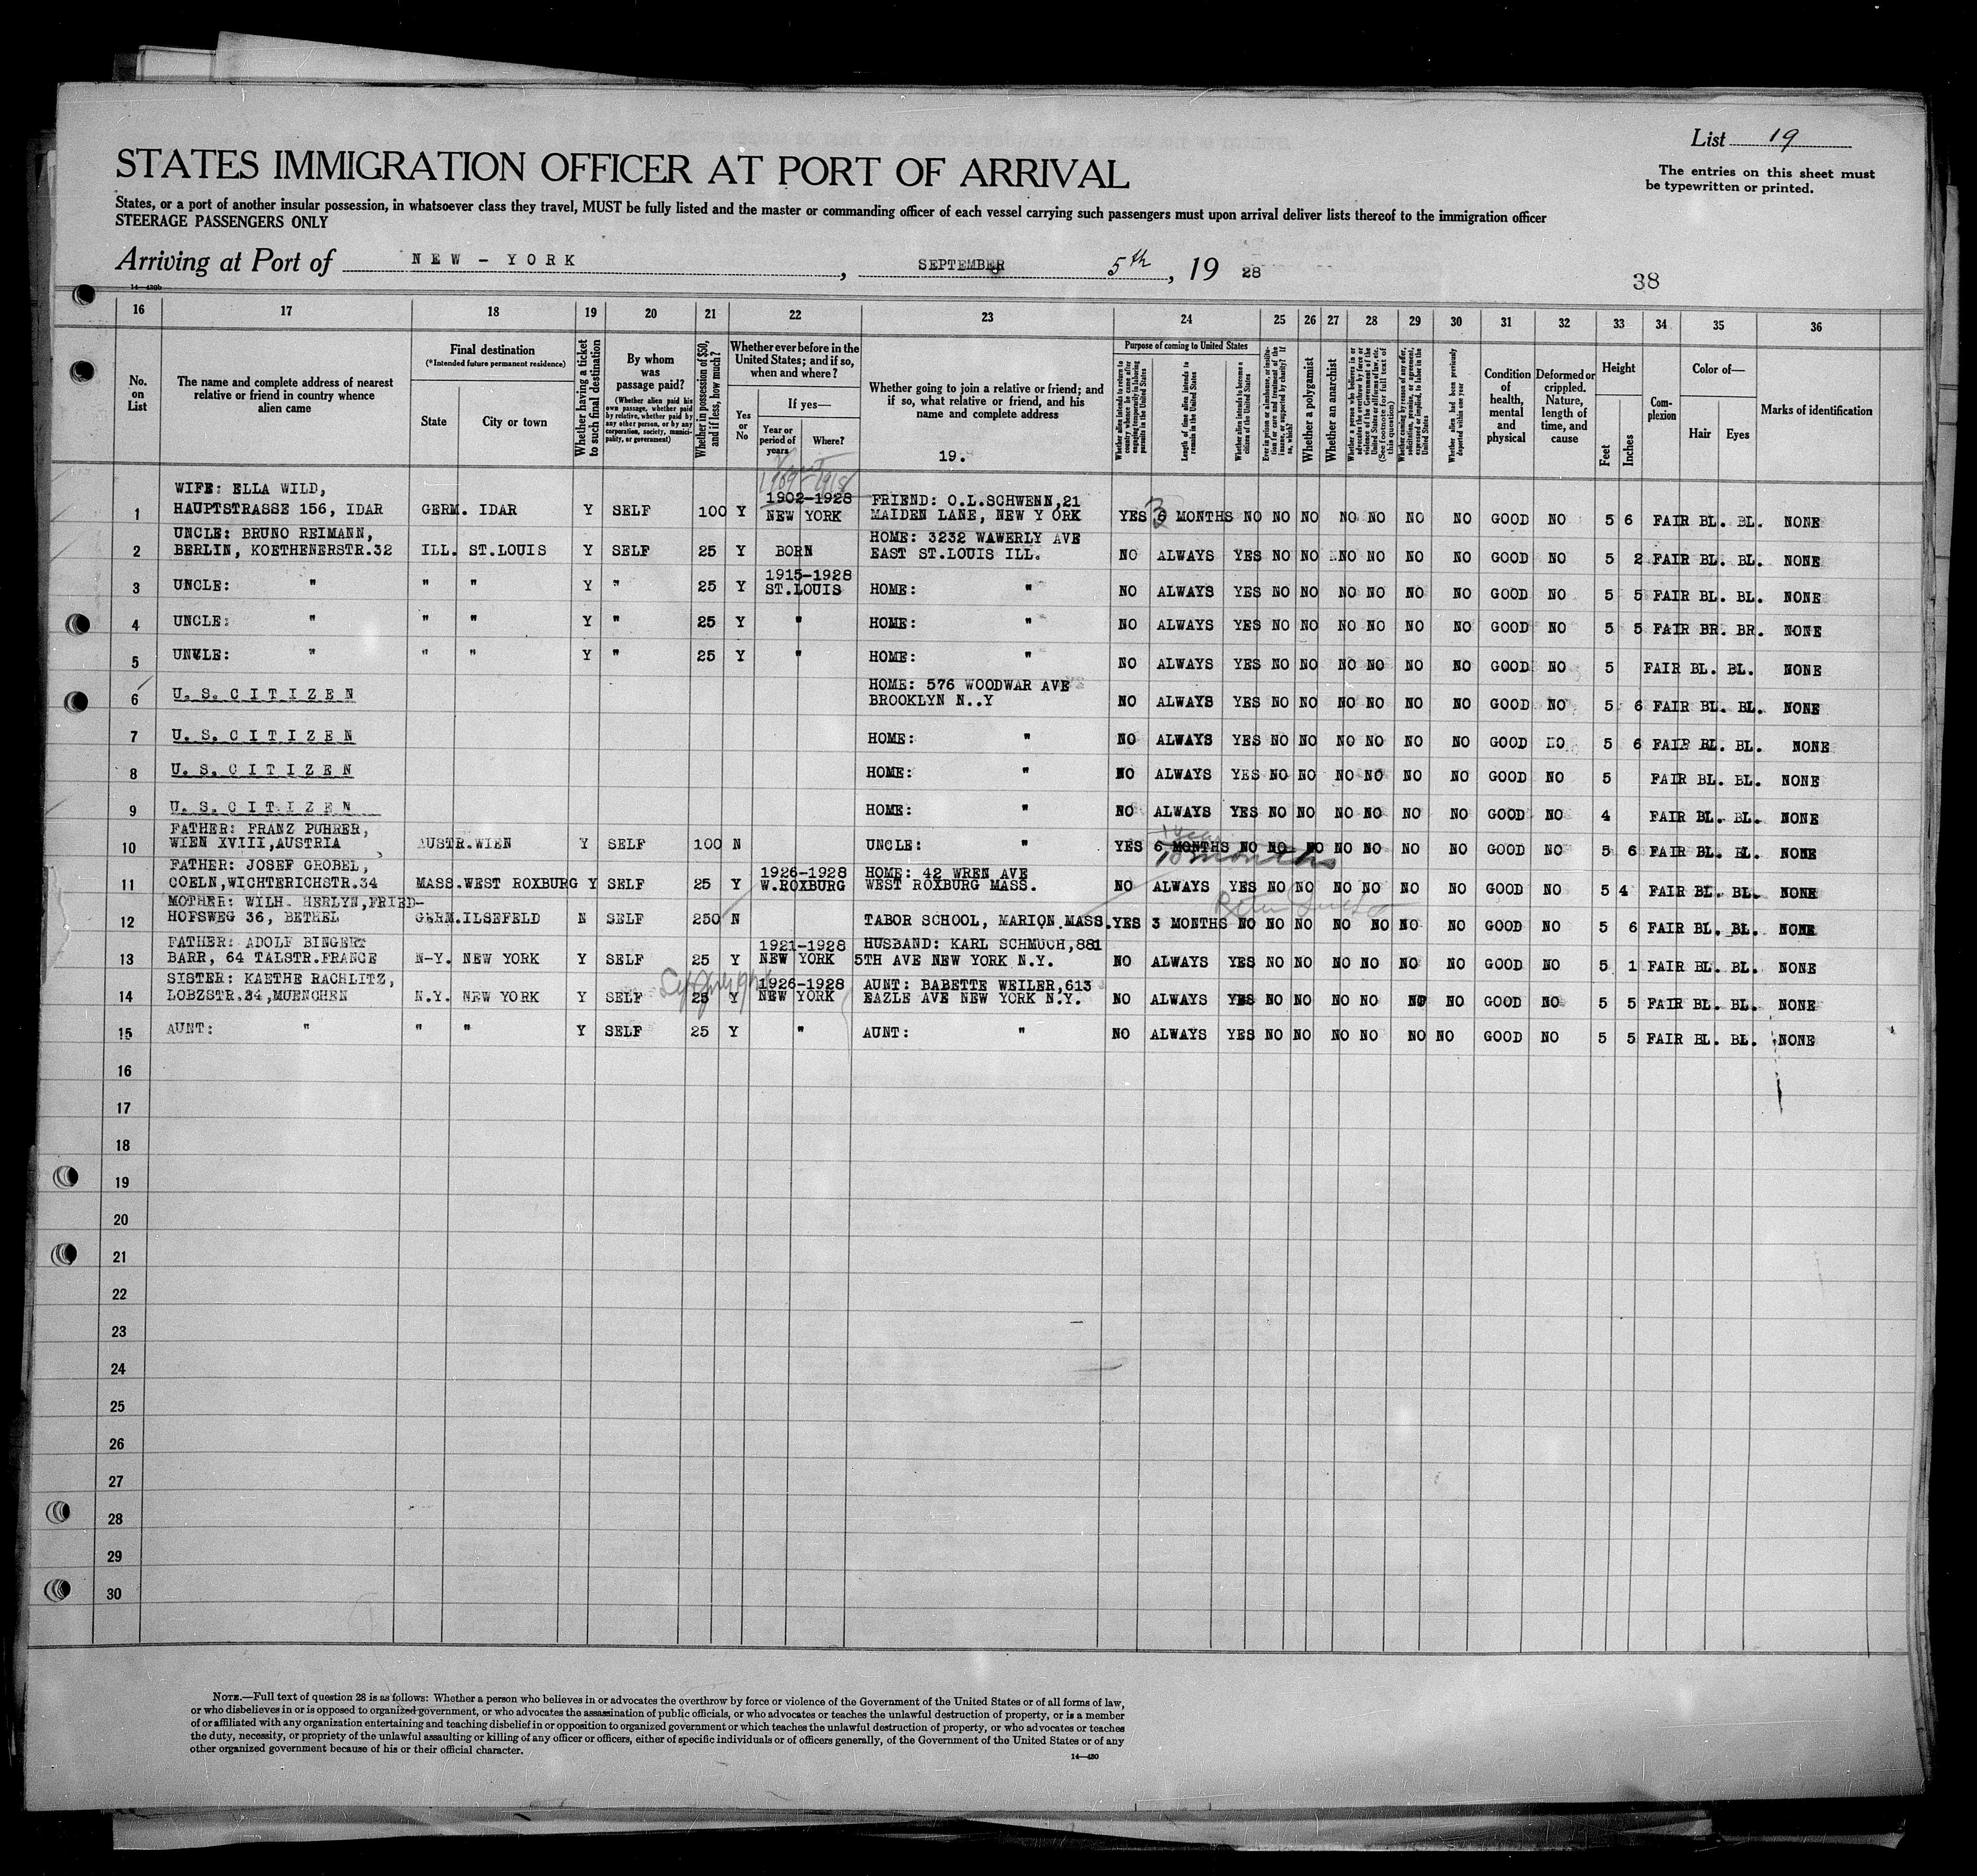 List 19
The entries on this sheet must
be typewritten or printed.
STATES IMMIGRATION OFFICER AT PORT OF ARRIVAL
States, or a port of another insular possession, in whatsoever class they travel, MUST be fully listed and the master or commanding officer of each vessel carrying such passengers must upon arrival deliver lists thereof to the immigration officer
STEERAGE PASSENGERS ONLY
Arriving at Port of NEW - YORK, SEPTEMBER 5th, 19 28
38
14—430b
16 17 18 19 20 21 22 23 24 25 26 27 28 29 30 31 32 33 34 35 36
No. on List
The name and complete address of nearest relative or friend in country whence alien came
Final destination
(*Intended future permanent residence)
State
City or town
Whether having a ticket to such final destination
By whom was passage paid?
(Whether alien paid his own passage, whether paid by relative, whether paid by any other person, or by any corporation, society, municipality, or government)
Whether in possession of $50, and if less, how much?
Whether ever before in the United States; and if so, when and where?
Yes or No
If yes—
Year or period of years
Where?
Whether going to join a relative or friend; and if so, what relative or friend, and his name and complete address
19.
Purpose of coming to United States
Length of time alien intends to remain in the United States
Whether alien intends to become a citizen of the United States
Whether a polygamist
Whether an anarchist
Whether alien had been previously deported within one year
Condition of health, mental and physical
Deformed or crippled. Nature, length of time, and cause
Height
Feet
Inches
Complexion
Color of—
Hair
Eyes
Marks of identification
WIFE: ELLA WILD,
1902-1928 FRIEND: O.L.SCHWENN,21
1 HAUPTSTRASSE 156, IDAR GERM. IDAR Y SELF 100 Y NEW YORK MAIDEN LANE, NEW Y ORK YES 3 MONTHS NO NO NO NO NO NO NO GOOD NO 5 6 FAIR BL. BL. NONE
UNCLE: BRUNO REIMANN, HOME: 3232 WAWERLY AVE
2 BERLIN, KOETHENERSTR.32 ILL. ST.LOUIS Y SELF 25 Y BORN EAST ST.LOUIS ILL. NO ALWAYS YES NO NO NO NO NO NO GOOD NO 5 2 FAIR BL. BL. NONE
1915-1928
3 UNCLE: " " " Y " 25 Y ST.LOUIS HOME: " NO ALWAYS YES NO NO NO NO NO NO GOOD NO 5 5 FAIR BL. BL. NONE
4 UNCLE: " " " Y " 25 Y " HOME: " NO ALWAYS YES NO NO NO NO NO NO GOOD NO 5 5 FAIR BR. BR. NONE
5 UNVLE: " " " Y " 25 Y " HOME: " NO ALWAYS YES NO NO NO NO NO NO GOOD NO 5 FAIR BL. BL. NONE
HOME: 576 WOODWAR AVE
6 U. S. C I T I Z E N BROOKLYN N..Y NO ALWAYS YES NO NO NO NO NO NO GOOD NO 5 6 FAIR BL. BL. NONE
7 U. S. C I T I Z E N HOME: " NO ALWAYS YES NO NO NO NO NO NO GOOD NO 5 6 FAIR BL. BL. NONE
8 U. S. C I T I Z E N HOME: " NO ALWAYS YES NO NO NO NO NO NO GOOD NO 5 FAIR BL. BL. NONE
9 U. S. C I T I Z E N HOME: " NO ALWAYS YES NO NO NO NO NO NO GOOD NO 4 FAIR BL. BL. NONE
FATHER: FRANZ PUHRER,
10 WIEN XVIII,AUSTRIA AUSTR.WIEN Y SELF 100 N UNCLE: " YES 6 MONTHS NO NO NO NO NO NO NO GOOD NO 5 6 FAIR BL. BL. NONE
10 months
FATHER: JOSEF GROBEL, 1926-1928 HOME: 42 WREN AVE
11 COELN,WICHTERICHSTR.34 MASS.WEST ROXBURG Y SELF 25 Y W.ROXBURG WEST ROXBURG MASS. NO ALWAYS YES NO NO NO NO NO NO GOOD NO 5 4 FAIR BL. BL. NONE
MOTHER: WILH. HERLYN,FRIED-
12 HOFSWEG 36, BETHEL GERM.ILSEFELD N SELF 250 N TABOR SCHOOL, MARION MASS. YES 3 MONTHS NO NO NO NO NO NO NO GOOD NO 5 6 FAIR BL. BL. NONE
FATHER: ADOLF BINGERT 1921-1928 HUSBAND: KARL SCHMUCH,881
13 BARR, 64 TALSTR.FRANCE N-Y. NEW YORK Y SELF 25 Y NEW YORK 5TH AVE NEW YORK N.Y. NO ALWAYS YES NO NO NO NO NO NO GOOD NO 5 1 FAIR BL. BL. NONE
SISTER: KAETHE RACHLITZ, 1926-1928 AUNT: BABETTE WEILER,613
14 LOBZSTR.34,MUENCHEN N.Y. NEW YORK Y SELF 25 Y NEW YORK EAZLE AVE NEW YORK N.Y. NO ALWAYS YES NO NO NO NO NO NO GOOD NO 5 5 FAIR BL. BL. NONE
15 AUNT: " " " Y SELF 25 Y " AUNT: " NO ALWAYS YES NO NO NO NO NO NO GOOD NO 5 5 FAIR BL. BL. NONE
16
17
18
19
20
21
22
23
24
25
26
27
28
29
30
NOTE.—Full text of question 28 is as follows: Whether a person who believes in or advocates the overthrow by force or violence of the Government of the United States or of all forms of law,
or who disbelieves in or is opposed to organized government, or who advocates the assassination of public officials, or who advocates or teaches the unlawful destruction of property, or is a member
of or affiliated with any organization entertaining and teaching disbelief in or opposition to organized government or which teaches the unlawful destruction of property, or who advocates or teaches
the duty, necessity, or propriety of the unlawful assaulting or killing of any officer or officers, either of specific individuals or of officers generally, of the Government of the United States or of any
other organized government because of his or their official character.
14—430